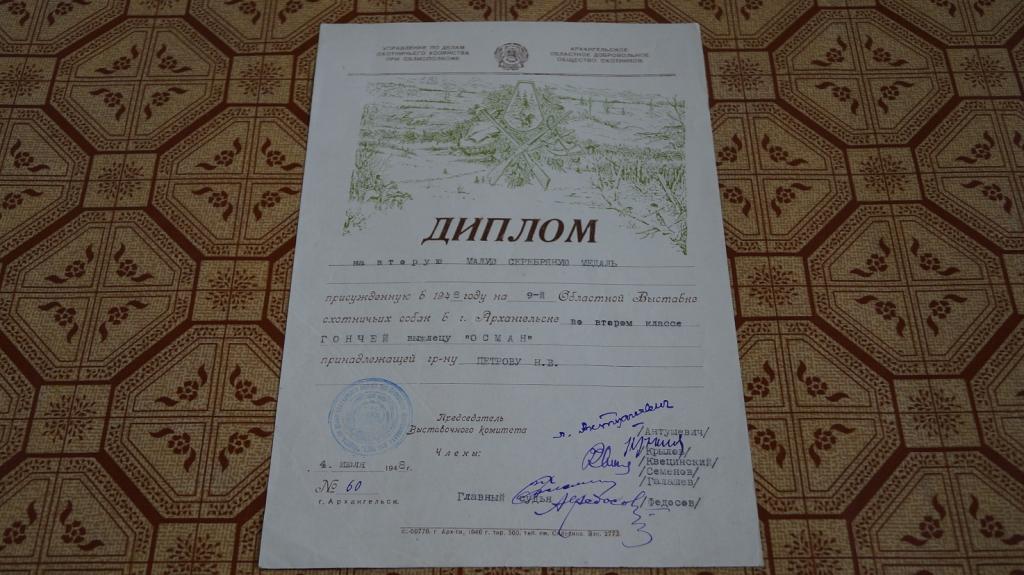 УПРАВЛЕНИЕ ПО ДЕЛАМ
ОХОТНИЧЬЕГО ХОЗЯЙСТВА
ПРИ ОБЛИСПОЛКОМЕ
АРХАНГЕЛЬСКОЕ
ОБЛАСТНОЕ ДОБРОВОЛЬНОЕ
ОБЩЕСТВО ОХОТНИКОВ
ДИПЛОМ
на вторую МАЛУЮ СЕРЕБРЯНУЮ МЕДАЛЬ
присужденную в 1948 году на 9-й Областной Выставке
охотничьих собак в г. Архангельске во втором классе
ГОНЧЕЙ выжлецу "ОСМАН"
принадлежащей гр-ну ПЕТРОВУ Н.В.
Председатель
Выставочного комитета
/Антушевич/
Члены:
/Крылов/
/Квецинский/
/Семенов/
/Галашев/
4 июля 1948г.
№ 60
г. Архангельск.
Главный судья /Федосов/
г. Арх-ск, 1946 г. тир. 500, тип. им. Зак. 2773